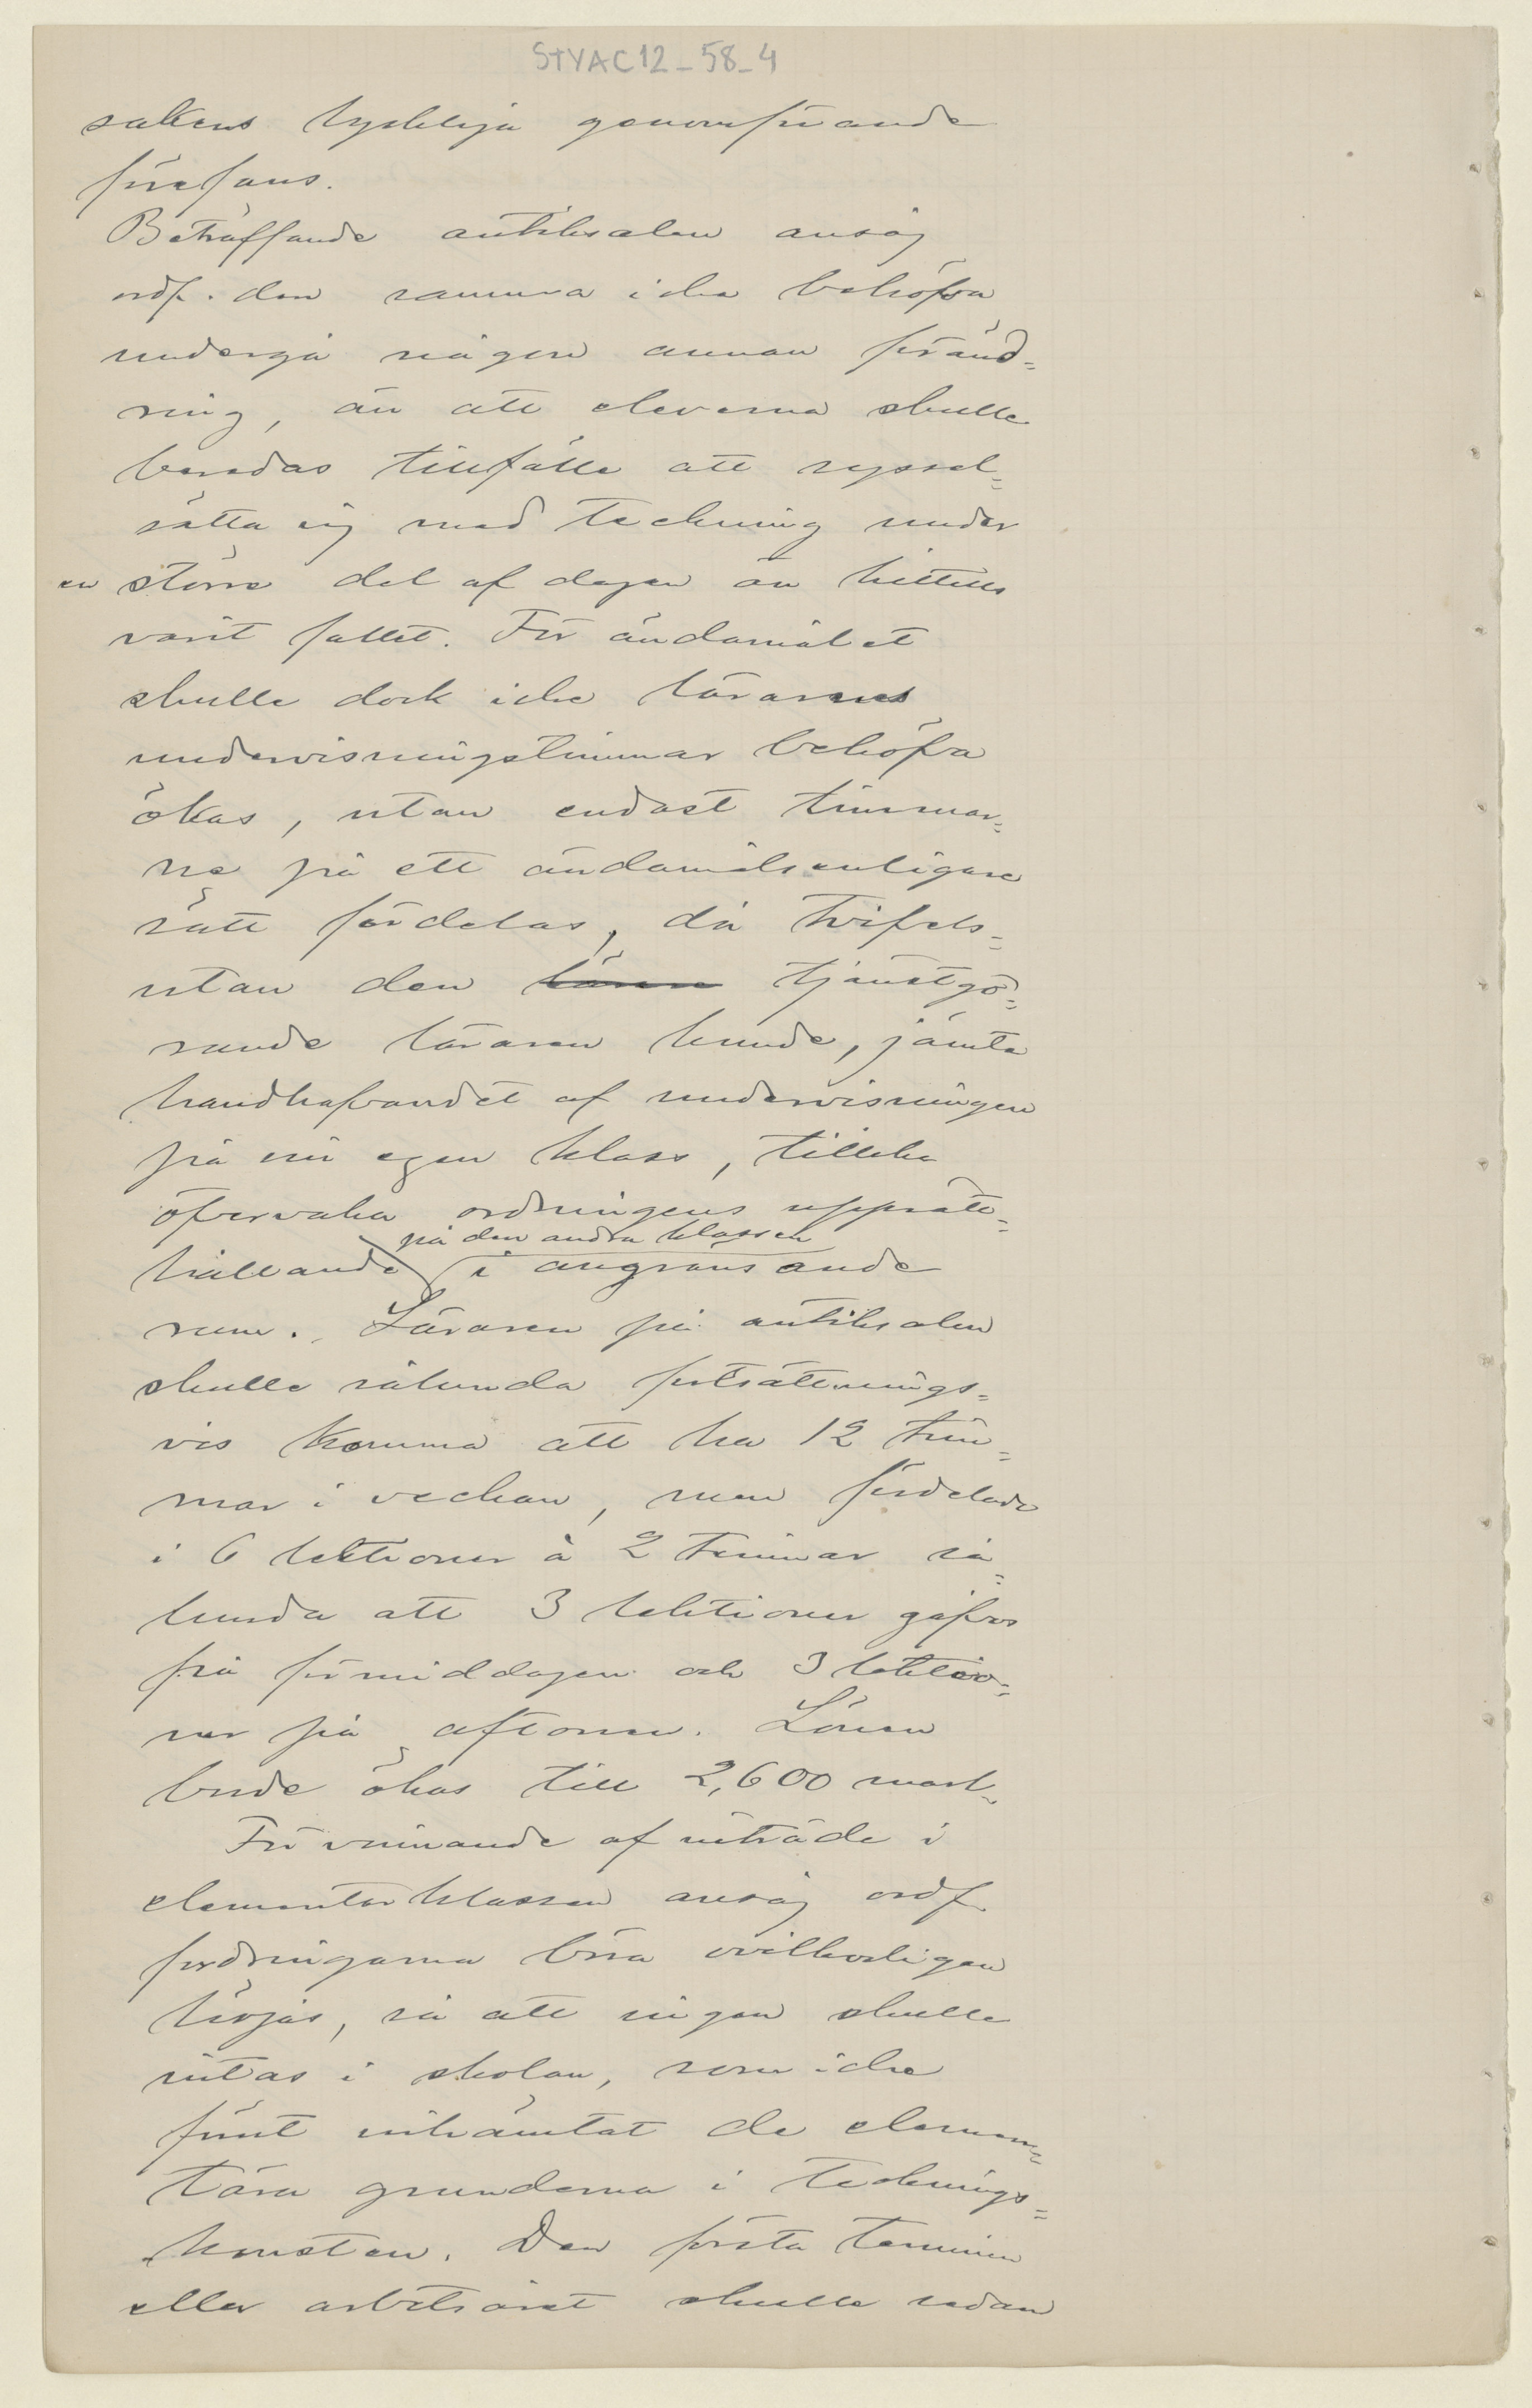 STYAC12_58_4
sakens lyckliga genomförande
förefans.
Beträffande antiksalen ansåg
ordf. den samma icke behöfva
undergå någon annan föränd=
ring, än att eleverna skulle
beredas tillfälle att syssel=
sätta sig med teckning under
en större del af dagen än hittills
varit fallet. För ändamålet
skulle dock icke lärarens
undervisningstimmar behöfva
ökas, utan endast timmar=
na på ett ändamålsenligare
sätt fördelas, då tvifvels=
utan den lärare tjänstgö=
rande läraren kunde, jämte
handhafvandet af undervisningen
på sin egen klass, tillika
öfvervaka ordningens upprätt=
på den andra klassen
hållande i angränsande
rum. Läraren på antiksalen
skulle sålunda fortsättnings=
vis komma att ha 12 tim=
mar i veckan, men fördelade
i 6 lektioner à 2 timmar så=
lunda att 3 lektioner gifves
på förmiddagen och 3 lektio=
ner på aftonen. Lönen
borde ökas till 2,600 mark.
För vinnande af inträde i
elementarklassen ansåg ordf.
fordringarna böra ovillkorligen
höjas, så att ingen skulle
intas i skolan, som icke
förut inhämtat de elemen=
tära grunderna i tecknings=
konsten. Den första terminen
eller arbetsåret skulle sedan